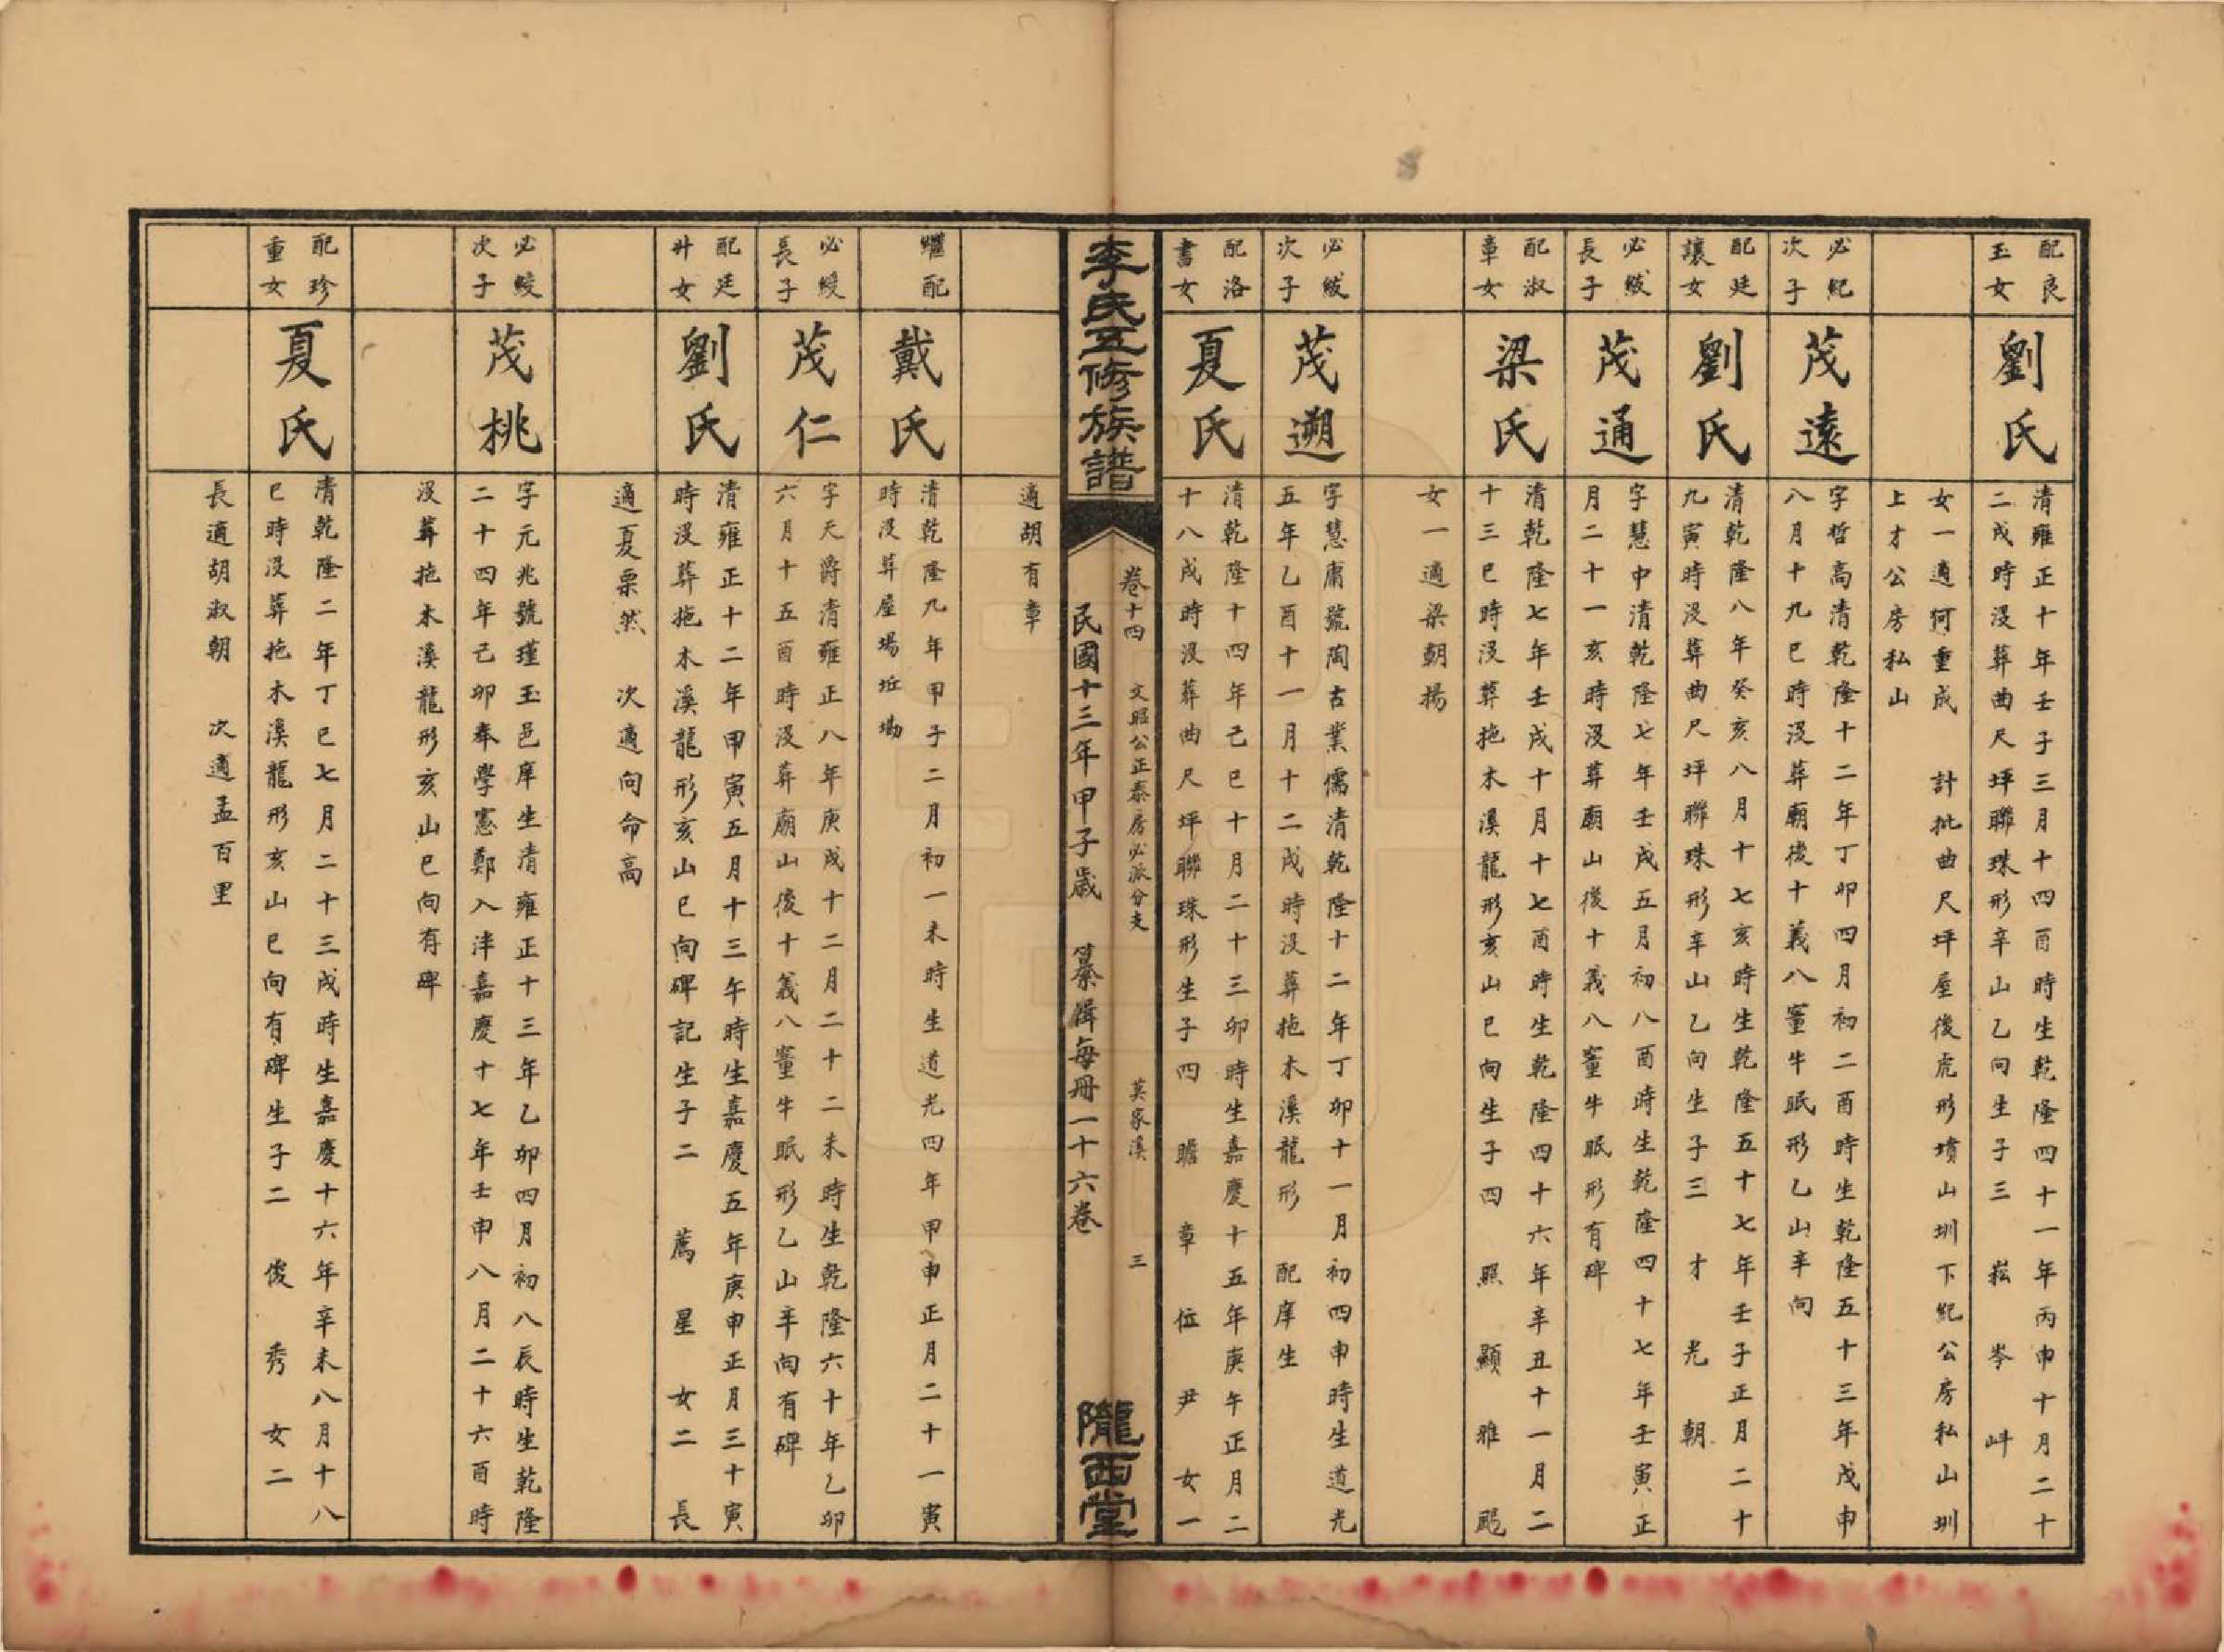 配良
玉女
劉氏
清雍正十年壬子三月十四酉時生乾隆四十一年丙申十月二十
二戌時没葬曲尺坪聯珠形辛山乙向生子三 崧 岑 㟁
女一適何重成 計批曲尺坪屋後虎形墳山圳下紀公房私山圳
上才公房私山
必紀
次子
茂遠
字哲高清乾隆十二年丁卯四月初二酉時生乾隆五十三年戊申
八月十九巳時没葬廟後十義八薹牛眠形乙山辛向
配廷
讓女
劉氏
清乾隆八年癸亥八月十七亥時生乾隆五十七年壬子正月二十
九寅時没葬曲尺坪聯珠形辛山乙向生子三 才 光 朝
必紱
長子
茂通
字慧中清乾隆七年壬戌五月初八酉時生乾隆四十七年壬寅正
月二十一亥時没葬廟山後十義八薹牛眠形有碑
配淑
章女
梁氏
清乾隆七年壬戌十月十七酉時生乾隆四十六年辛丑十一月二
十三巳時没葬拖木溪龍形亥山巳向生子四 照 顯 雅 颺
女一適梁朝揚
必紱
次子
茂遡
字慧庸號陶古業儒清乾隆十二年丁卯十一月初四申時生道光
五年乙酉十一月十二戌時没葬拖木溪龍形 配庠生
配洛
書女
夏氏
清乾隆十四年己巳十月二十三卯時生嘉慶十五年庚午正月二
十八戌時没葬曲尺坪聯珠形生子四 瞻 章 位 尹 女一
李氏五修族譜
卷十四 文昭公正泰房必派分支 莫家溪 三
民國十三年甲子歲 纂緝每冊一十六卷
隴西堂
適胡有章
繼配
戴氏
清乾隆九年甲子二月初一未時生道光四年甲申正月二十一寅
時没葬屋場坵塝
必綬
長子
茂仁
字天爵清雍正八年庚戌十二月二十二未時生乾隆六十年乙卯
六月十五酉時没葬廟山後十義八薹牛眠形乙山辛向有碑
配廷
升女
劉氏
清雍正十二年甲寅五月十三午時生嘉慶五年庚申正月三十寅
時没葬拖木溪龍形亥山巳向碑記生子二 薦 星 女二 長
適夏栗然 次適向命高
必綬
次子
茂桃
字元兆號瑾玉邑庠生清雍正十三年乙卯四月初八辰時生乾隆
二十四年己卯奉學憲鄭入泮嘉慶十七年壬申八月二十六酉時
没葬拖木溪龍形亥山巳向有碑
配珍
重女
夏氏
清乾隆二年丁巳七月二十三戌時生嘉慶十六年辛未八月十八
巳時没葬拖木溪龍形亥山巳向有碑生子二 俊 秀 女二
長適胡淑朝 次適孟百里